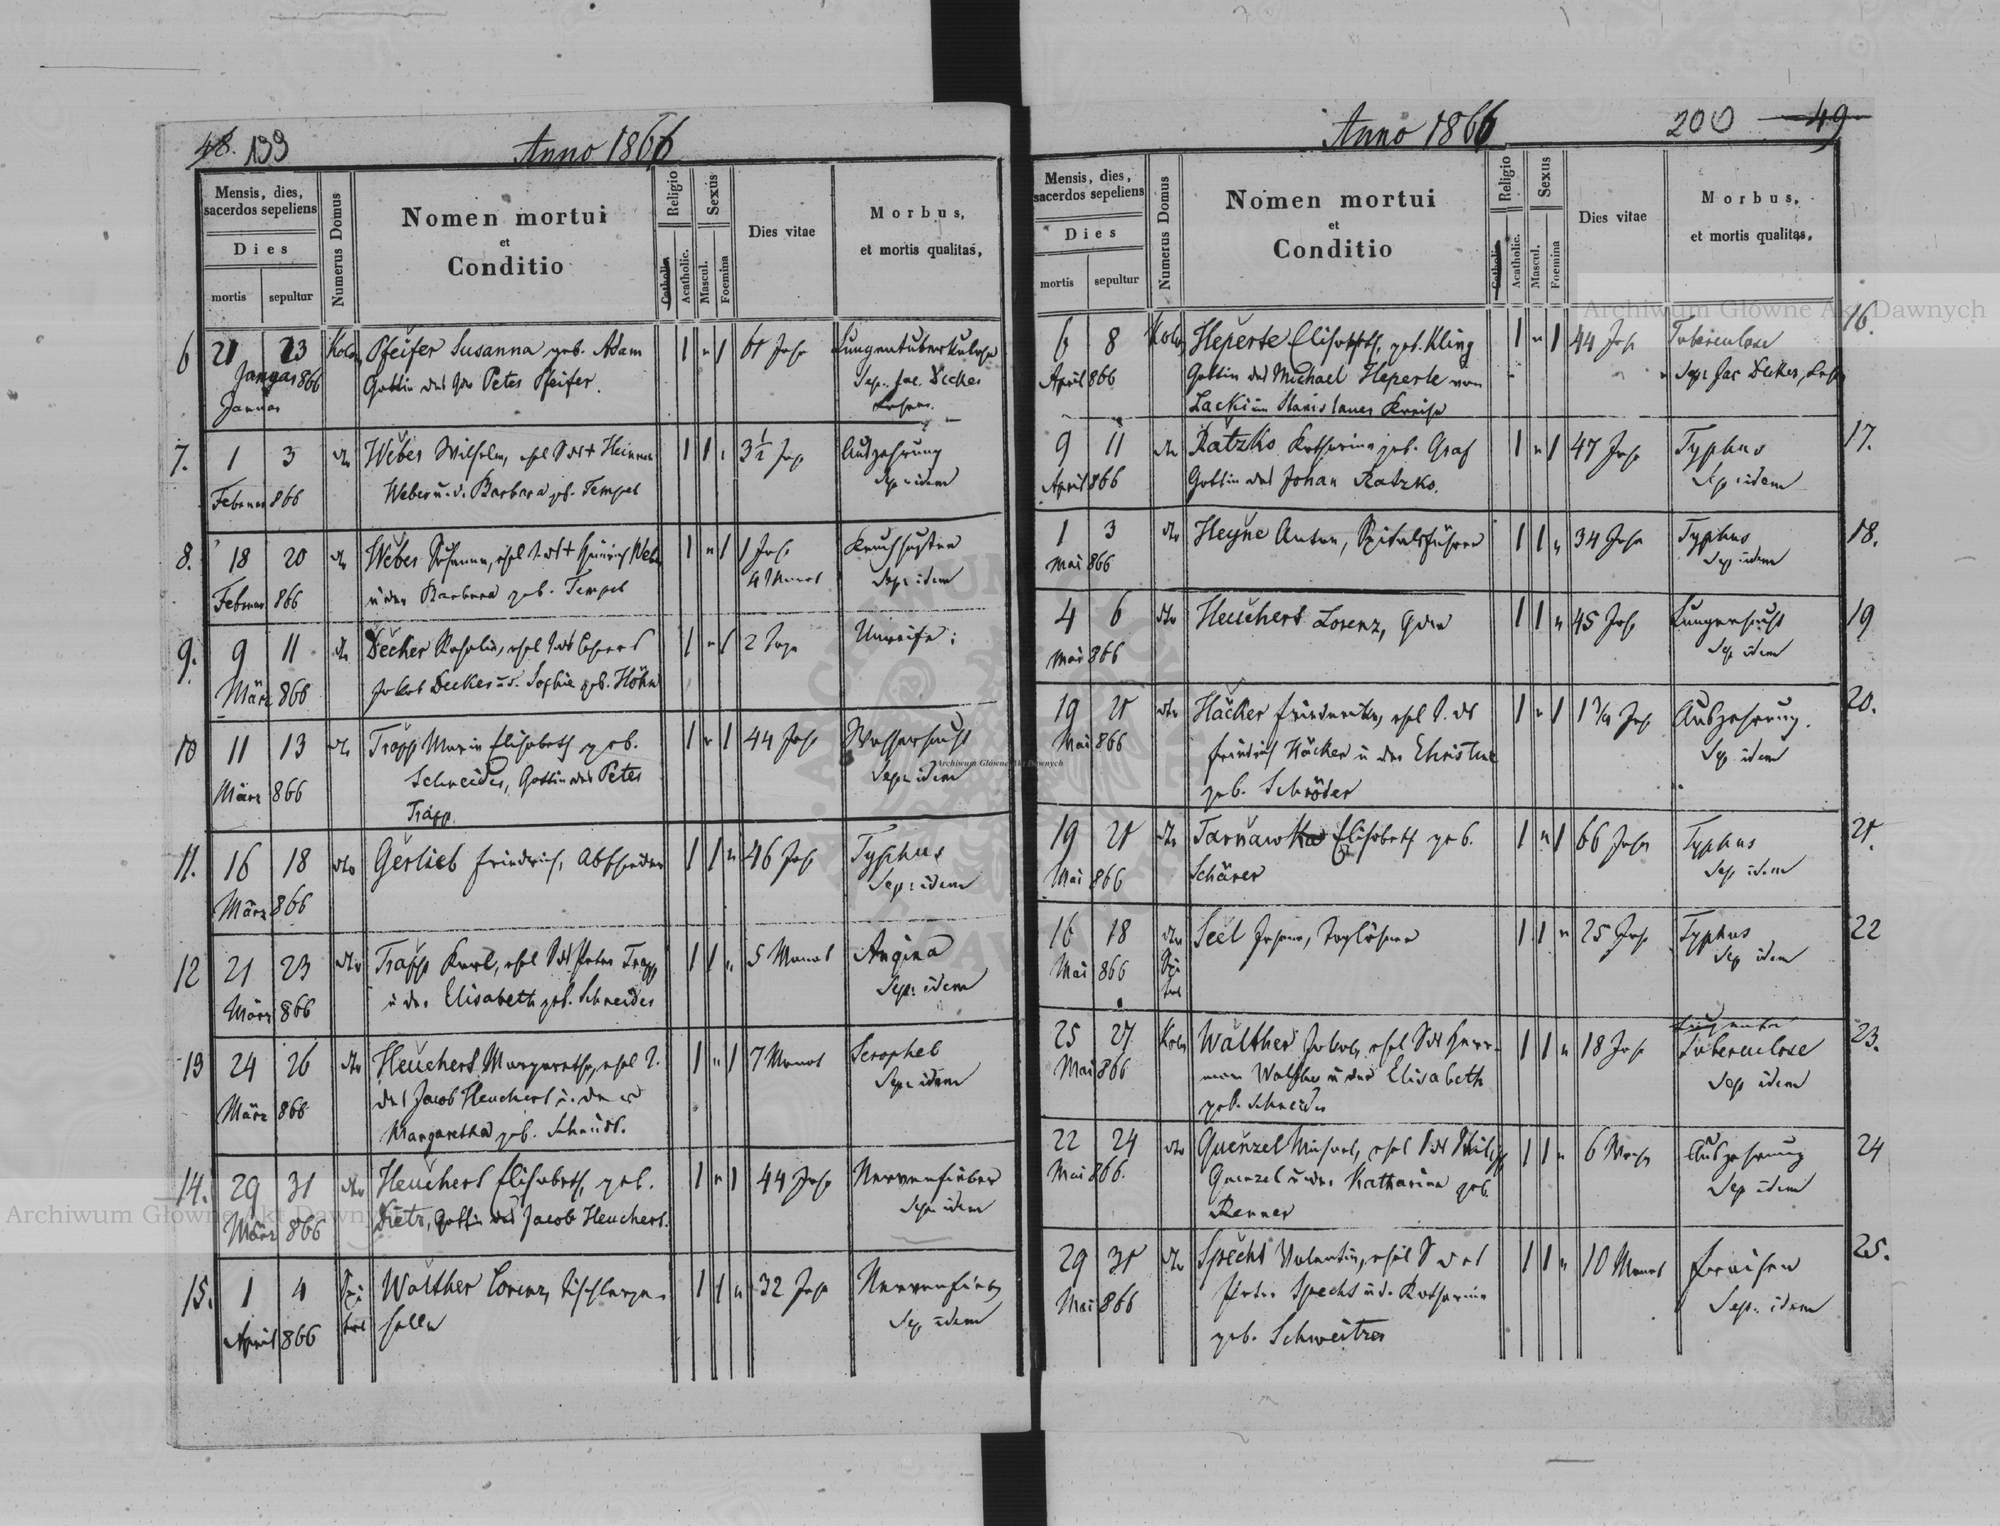 48. 199
Anno 1866
Mensis, dies,
sacerdos sepeliens
Dies
mortis
sepultur
Numerus Domus
Nomen mortui
et
Conditio
Religio
Catholic.
Acatholic.
Sexus
Mascul.
Foemina
Dies vitae
Morbus,
et mortis qualitas,
6 21 23 Kolon Pfeifer Susanna geb. Adam 1 " 1 61 Jahr Lungentuberkulose
Januar 866 Gattin des Peter Pfeifer. Sep. Jac. Decker
Januar Lehrer.
7. 1 3 dto Weber Wilhelm, ehel S des + Heinrich 1 1 " 3 1/2 Jahr Auszehrung
Februar 866 Weber u. d. Barbara geb. Tempel Sep: idem
8. 18 20 dto Weber Susanna, ehel T. des + Heinrich Weber 1 " 1 1 Jahr Keuchhusten
4 Monat Sep: idem
Februar 866 u der Barbara geb. Tempel
9. 9 11 dto Decker Rosalia, ehel T. des Lehrers 1 " 1 2 Tage Unreife:
März 866 Jakob Decker u. d. Sophie geb. Höhn
10 11 13 dto Trapp Maria Elisabeth geb. 1 " 1 44 Jahr Wassersucht
März 866 Schneider, Gattin des Peter Sep: idem
Trapp.
11. 16 18 dto Gerlieb Friedrich, 1 1 " 46 Jahr Typhus
März 866 Sep: idem
12 21 23 dto Trapp Karl, ehel S des Peter Trapp 1 1 " 5 Monat Angina
März 866 u der Elisabeth geb. Schneider Sep: idem
13 24 26 dto Heuchert Margaretha, ehel T. 1 " 1 7 Monat Scrophel
März 866 des Jacob Heuchert u. der Sep: idem
Margaretha geb. Schmidt.
14. 29 31 dto Heuchert Elisabeth, geb. 1 " 1 44 Jahr Nervenfieber
März 866 Dietz, Gattin des Jacob Heuchert. Sep: idem
15. 1 4 Spi Walther Lorenz, Tischlerge- 1 1 " 32 Jahr Nervenfieber
April 866 tal selle Sep idem
Anno 1866
200 49
Mensis, dies,
sacerdos sepeliens
Dies
mortis
sepultur
Numerus Domus
Nomen mortui
et
Conditio
Religio
Catholic.
Acatholic.
Sexus
Mascul.
Foemina
Dies vitae
Morbus,
et mortis qualitas,
6 8 Kolon Heperle Elisabeth, geb. Kling 1 " 1 44 Jahr Tuberculose 16.
April 866 Gattin des Michael Heperle von Sep: Jac Decker, Lehrer
Lacki im Stanislauer Kreise
9 11 dto Ratzko Katharina geb. Graf 1 " 1 47 Jahr Typhus 17.
April 866 Gattin des Johan Ratzko. Sep: idem
1 3 dto Heyne Anton, 1 1 " 34 Jahre Typhus 18.
Mai 866 Sep idem
4 6 dto Heuchert Lorenz, 1 1 " 45 Jahr Lungensucht 19
Mai 866 Sep idem
19 21 dto Häcker Friederike, ehel T. des 1 " 1 1 3/4 Jahr Auszehrung. 20.
Mai 866 Friedrich Häcker u der Christine Sep idem
geb. Schröder
19 21 dto Tarnawka Elisabeth geb. 1 " 1 66 Jahr Typhus 21.
Mai 866 Schärer Sep idem
16 18 dto Seel Johann, Taglöhner 1 1 " 25 Jahr Typhus 22
Mai 866 Spi Sep idem
tal
25 27 Kolon Walther Jakob, ehel S des Herr- 1 1 " 18 Jahr Tuberculose 23.
Mai 866 man Walther u der Elisabeth Sep idem
geb. Schneider
22 24 dto Quenzel Michael, ehel S des Philipp 1 1 " 6 Woch Auszehrung 24
Mai 866. Quenzel u der Katharina geb. Sep idem
Renner
29 31 dto Specht Valentin, ehel S des 1 1 " 10 Monat Fraisen 25.
Mai 866 Peter Specht u d. Katharina Sep: idem
geb. Schweitzer
Archiwum Główne Akt Dawnych
Archiwum Główne Akt Dawnych
Archiwum Główne Akt Dawnych